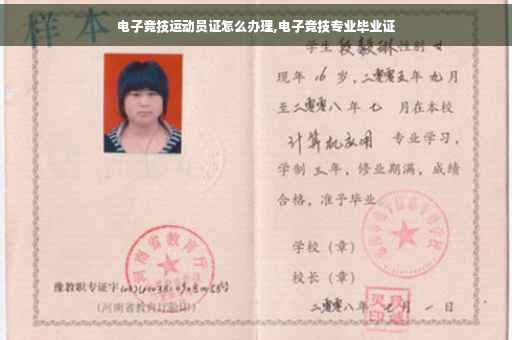 电子竞技运动员证怎么办理,电子竞技专业毕业证
样本
学生段毅琳性别女
现年16岁,二零零五年九月
至二零零八年七月在本校
计算机应用 专业学习,
学制三年,修业期满,成绩
合格,准予毕业
学校(章)
校长(章)
二零零八年七月一日
河南省教育厅
豫教职专证字
(河南省教育厅验印)